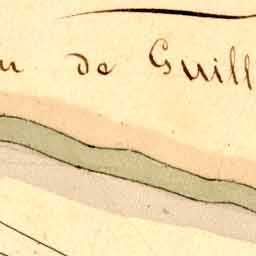 de Guill